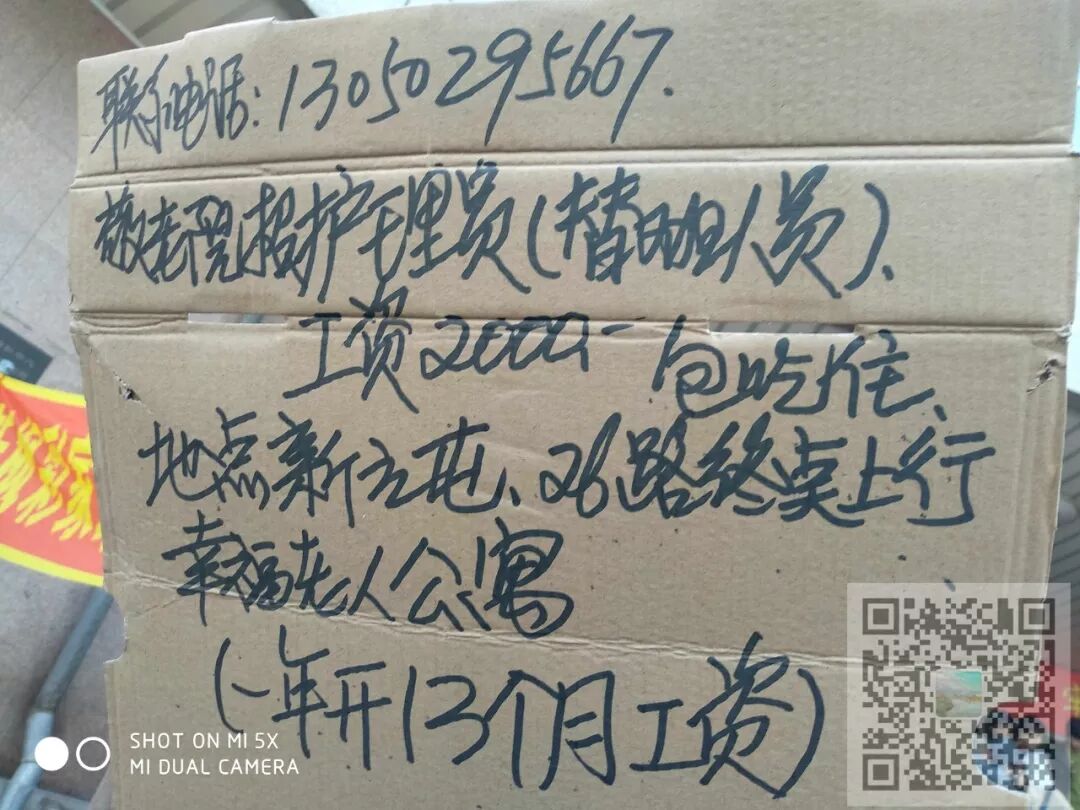 联系电话:13050295667.
敬老院招护理员(替班人员)、
工资2000- 包吃住、
地点新立屯、26路终点上行
幸福老人公寓
(一年开13个月工资)
SHOT ON MI 5X
MI DUAL CAMERA